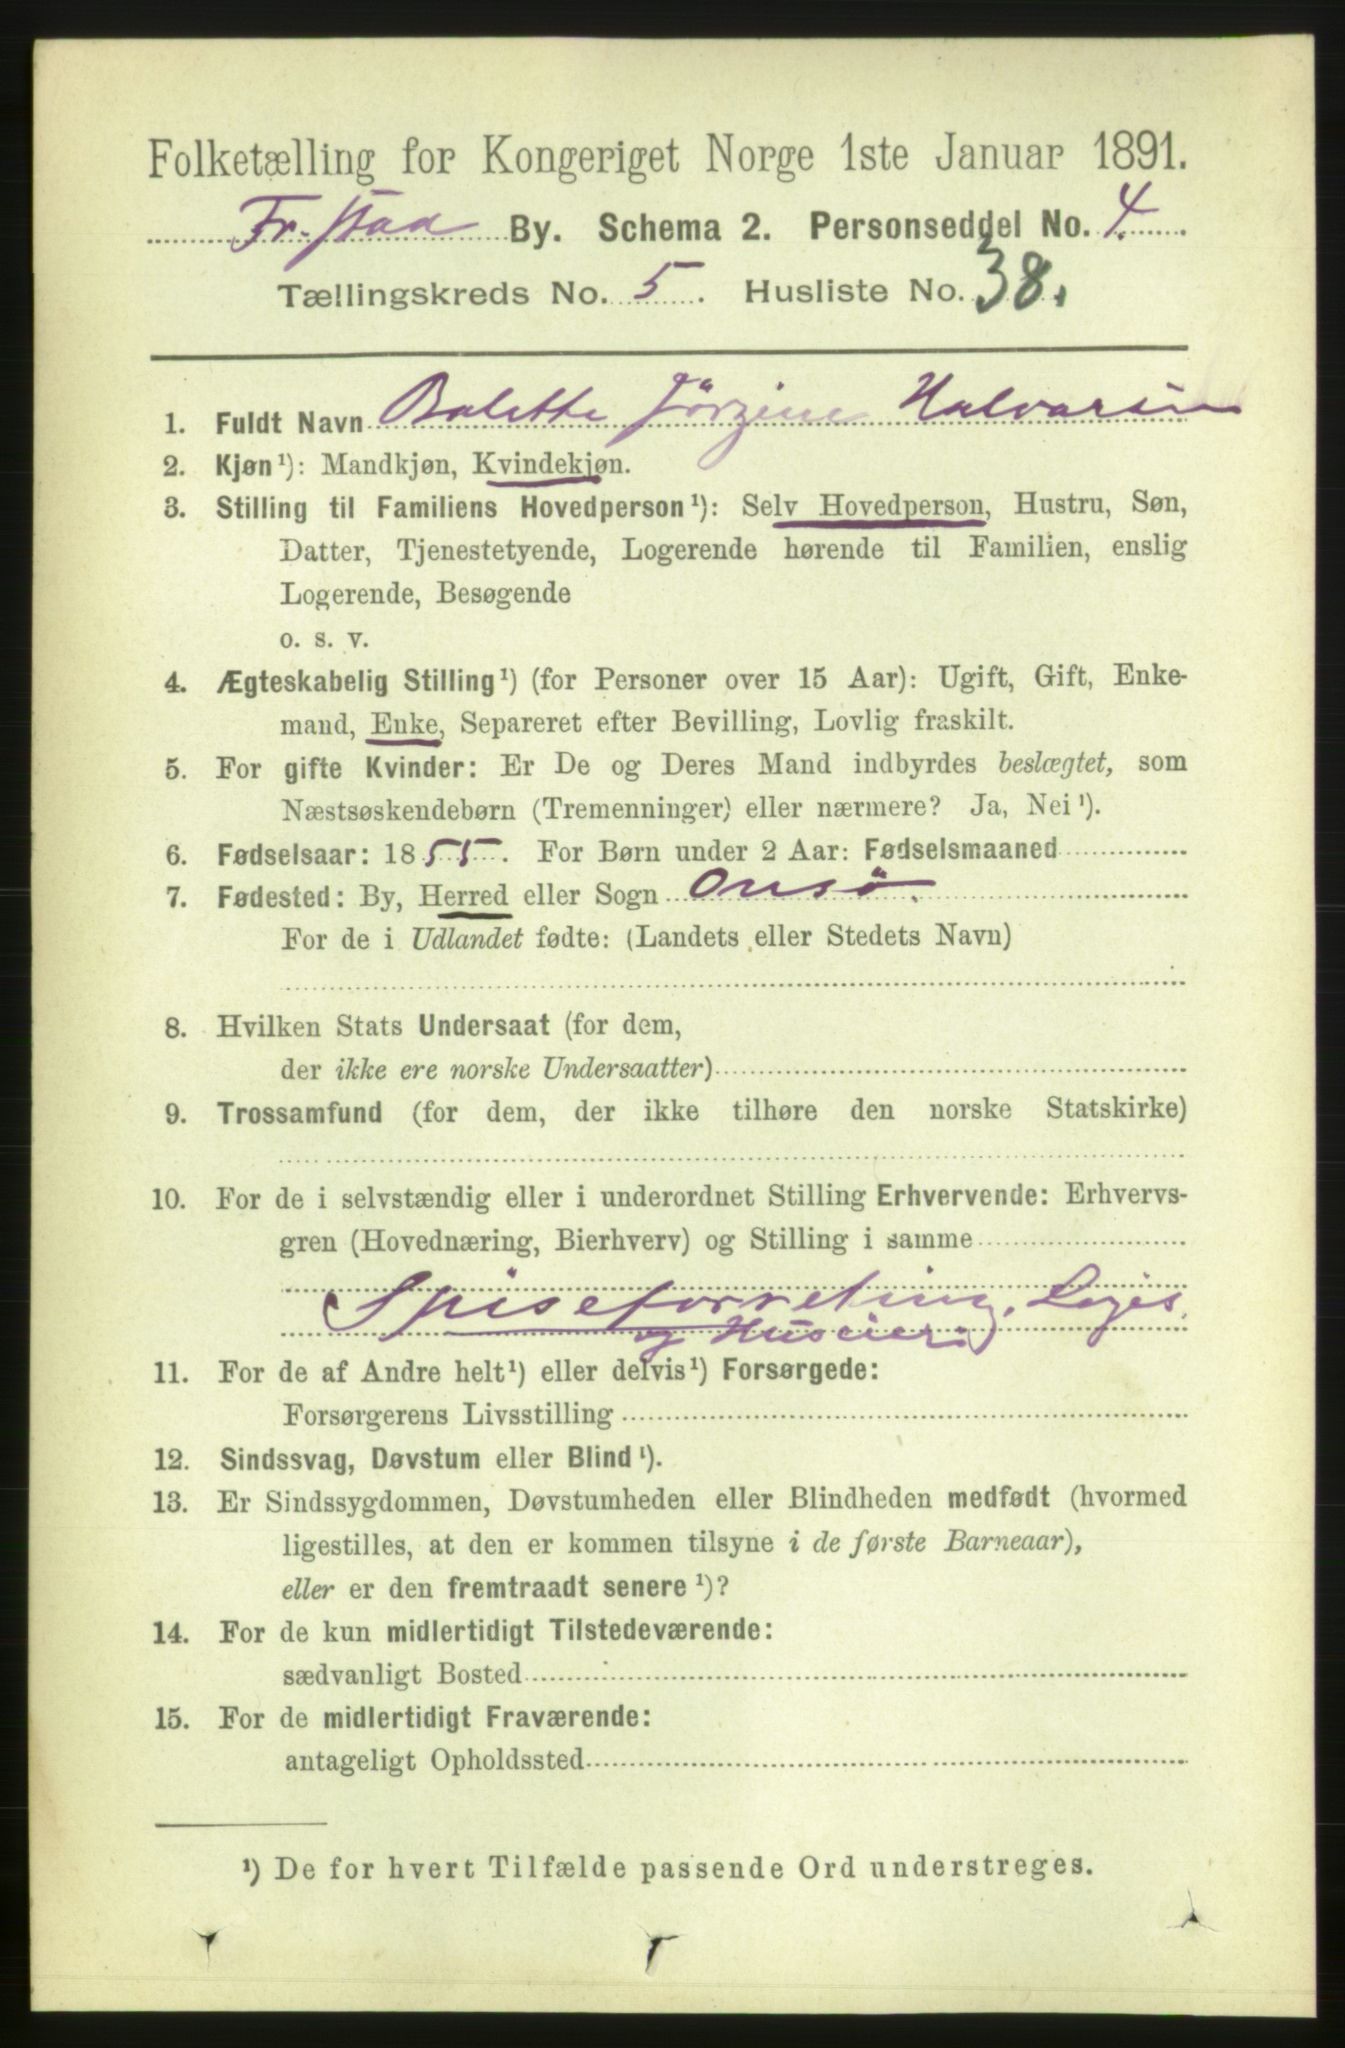 Folketælling for Kongeriget Norge 1ste Januar 1891.
Fr.stad By. Schema 2. Personseddel No. 4.
Tællingskreds No. 5. Husliste No. 38.
1. Fuldt Navn Bolette Jörgine Halvarsen
2. Kjøn¹): Mandkjøn, Kvindekjøn.
3. Stilling til Familiens Hovedperson¹): Selv Hovedperson, Hustru, Søn,
Datter, Tjenestetyende, Logerende hørende til Familien, enslig
Logerende, Besøgende
o. s. v.
4. Ægteskabelig Stilling¹) (for Personer over 15 Aar): Ugift, Gift, Enke-
mand, Enke, Separeret efter Bevilling, Lovlig fraskilt.
5. For gifte Kvinder: Er De og Deres Mand indbyrdes beslægtet, som
Næstsøskendebørn (Tremenninger) eller nærmere? Ja, Nei¹).
6. Fødselsaar: 1855. For Børn under 2 Aar: Fødselsmaaned
7. Fødested: By, Herred eller Sogn Onsö.
For de i Udlandet fødte: (Landets eller Stedets Navn)
8. Hvilken Stats Undersaat (for dem,
der ikke ere norske Undersaatter)
9. Trossamfund (for dem, der ikke tilhøre den norske Statskirke)
10. For de i selvstændig eller i underordnet Stilling Erhvervende: Erhvervs-
gren (Hovednæring, Bierhverv) og Stilling i samme
Spiseforretning, Logis
og Huseier.
11. For de af Andre helt¹) eller delvis¹) Forsørgede:
Forsørgerens Livsstilling
12. Sindssvag, Døvstum eller Blind¹).
13. Er Sindssygdommen, Døvstumheden eller Blindheden medfødt (hvormed
ligestilles, at den er kommen tilsyne i de første Barneaar),
eller er den fremtraadt senere¹)?
14. For de kun midlertidigt Tilstedeværende:
sædvanligt Bosted
15. For de midlertidigt Fraværende:
antageligt Opholdssted
¹) De for hvert Tilfælde passende Ord understreges.